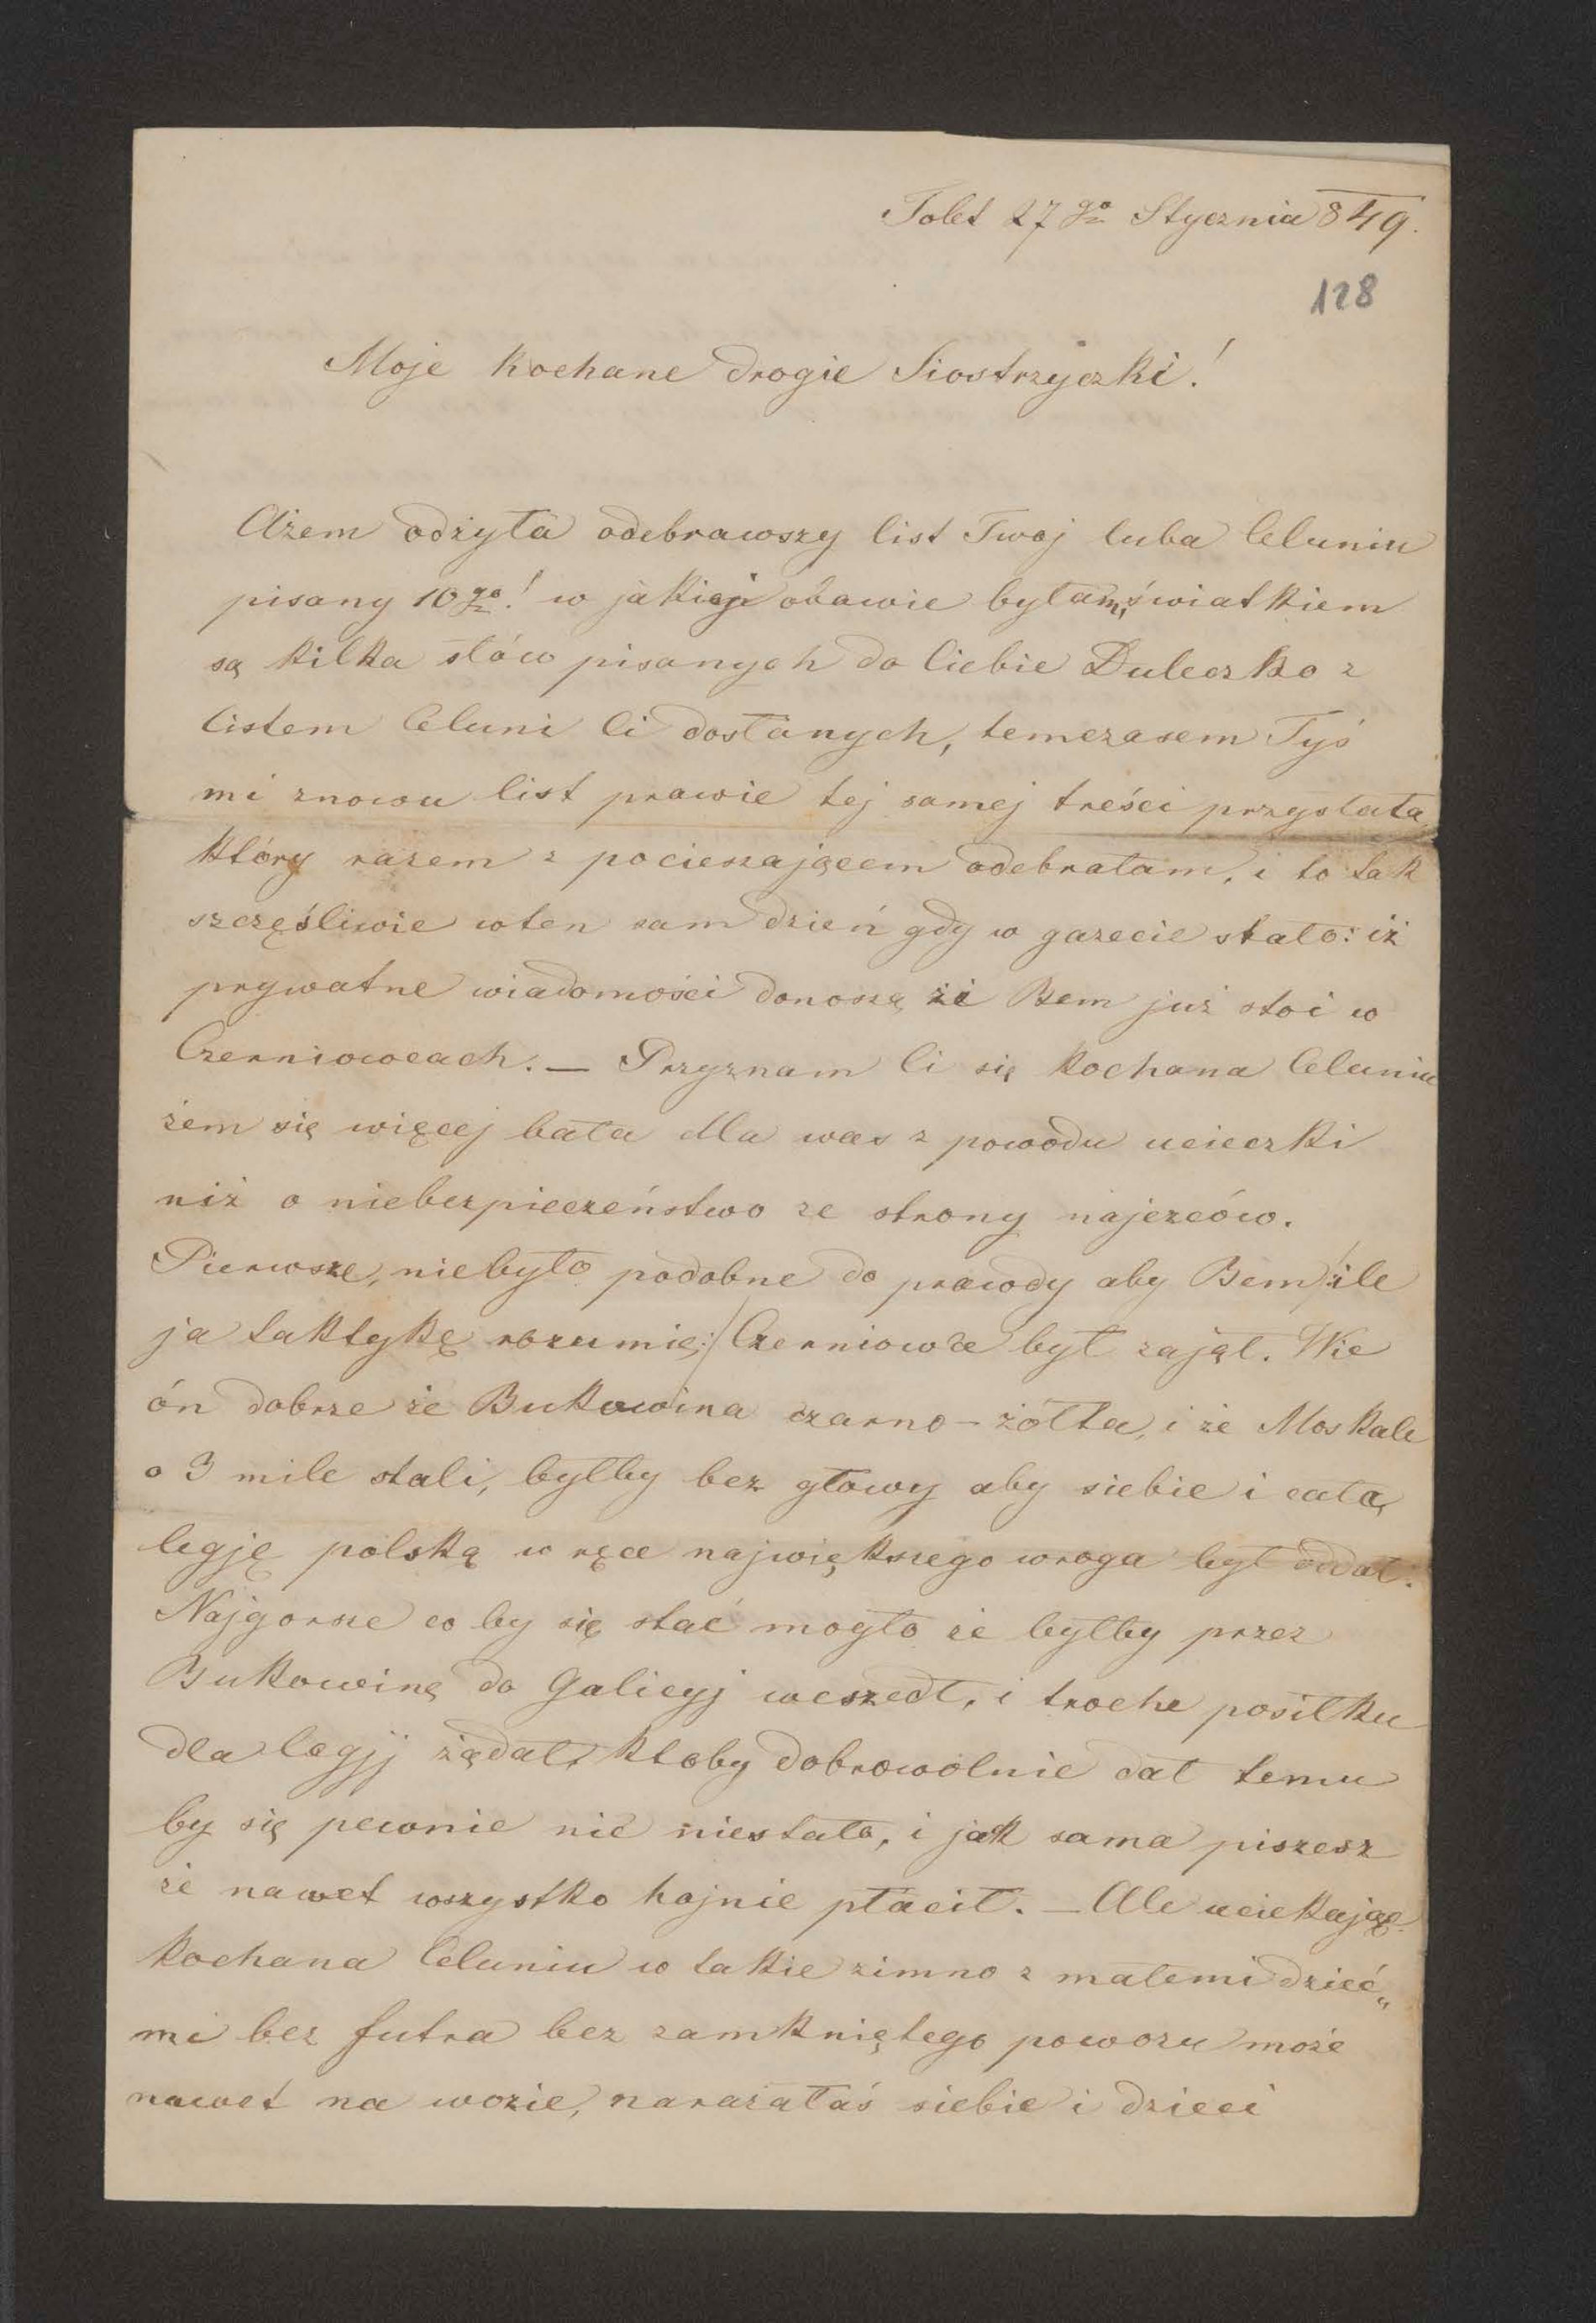 Tolet 27go Stycznia 849.
128
Moje kochane drogie Siostrzyczki!
Ażem odżyła odebrawszy list Twoj luba Celuniu
pisany 10go! w jakiej obawie byłam, światkiem
są kilka słów pisanych do Ciebie Duleczko z
listem Celuni Ci dosłanych, temczasem Tyś
mi znowu list prawie tej samej treści przysłała
który razem z pocieszającem odebrałam, i to tak
szczęśliwie w ten sam dzień gdy w gazecie stało: iż
prywatne wiadomości donoszą że Bem już stoi w
Czerniowcach. — Przyznam Ci się kochana Celuniu
żem się więcej bała dla was z powodu ucieczki
niż o niebezpieczeństwo ze strony najezców.
Pierwsze, niebyło podobne do prawdy aby Bem /:ile
ja taktykę rozumię:/ Czerniowce był zajął. Wie
ón dobrze że Bukowina czarno-żółta, i że Moskale
o 3 mile stali, byłby bez głowy aby siebie i całą
legję polską w ręce największego wroga był oddał.
Najgorsze co by się stać mogło że byłby przez
Bukowinę do Galicyj wszedł, i troche posiłku
dla legjj żądał, ktoby dobrowolnie dał temu
by się pewnie nic niestało, i jak sama piszesz
że nawet wszystko hojnie płacił. — Ale uciekając
kochana Celuniu w takie zimno z małemi dzieć„
mi bez futra bez zamkniętego powozu może
nawet na wozie, narażałaś siebie i dzieci